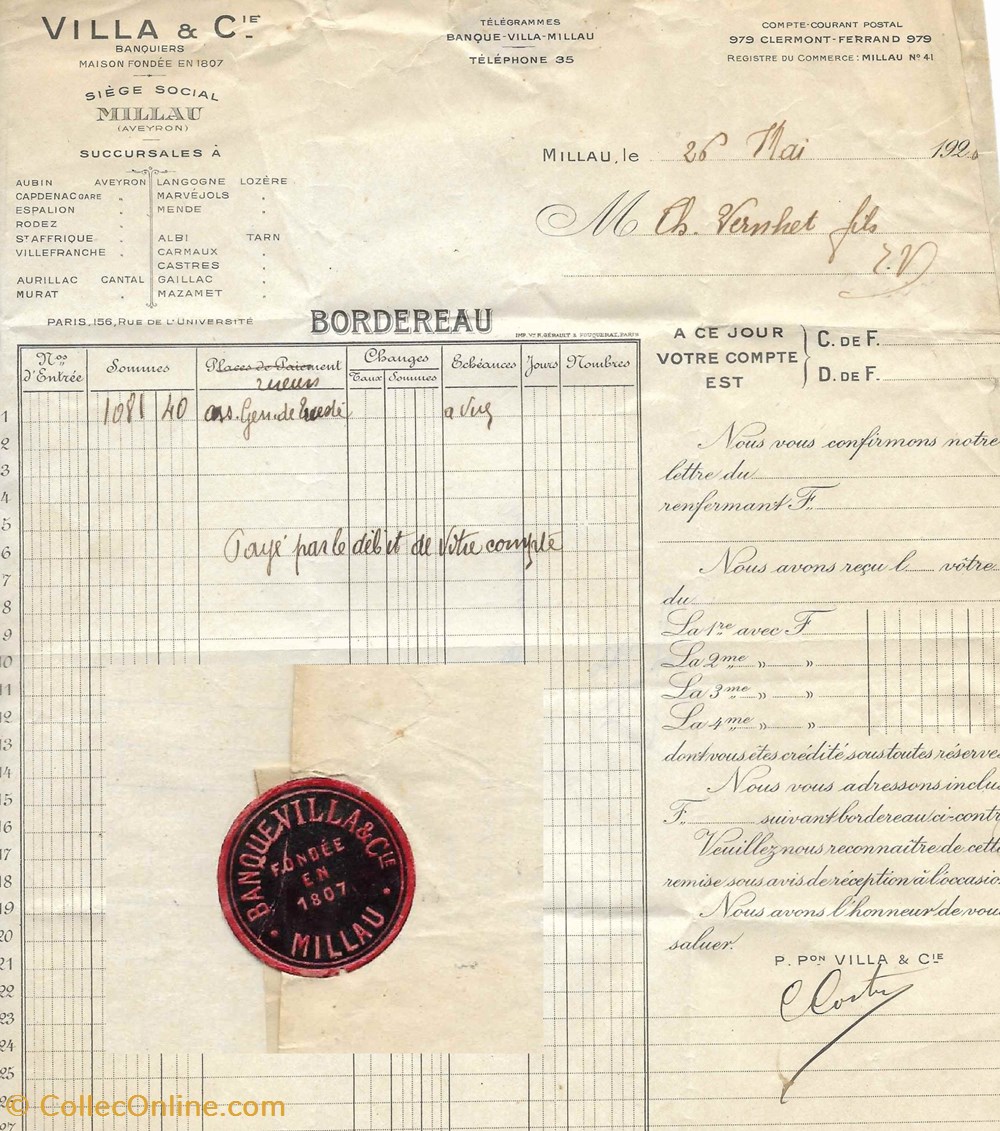 VILLA & CIE
BANQUIERS
MAISON FONDÉE EN 1807
SIÈGE SOCIAL
MILLAU
(AVEYRON)
SUCCURSALES À
AUBIN AVEYRON LANGOGNE LOZÈRE
CAPDENAC GARE " MARVÉJOLS "
ESPALION " MENDE "
RODEZ "
ST AFFRIQUE " ALBI TARN
VILLEFRANCHE " CARMAUX "
CASTRES "
AURILLAC CANTAL GAILLAC "
MURAT " MAZAMET "
PARIS, 156, RUE DE L'UNIVERSITÉ
TÉLÉGRAMMES
BANQUE-VILLA-MILLAU
TÉLÉPHONE 35
COMPTE-COURANT POSTAL
979 CLERMONT-FERRAND 979
REGISTRE DU COMMERCE : MILLAU No 41
MILLAU, le 26 Mai 192
M Ch. Vernhet fils
E.V
BORDEREAU
IMP. Vve P. GÉNAULT & FOUQUERAY, PARIS
Nos d'Entrée Sommes Places de Paiement Changes Echéances Jours Nombres
Taux Sommes
1 1081 40 Gen. de a vue
2
3
4
5
6 Payé par le débit de Votre compte
7
8
9
10
11
12
13
14
15
16
17
18
19
20
21
22
23
24
25
26
27
BANQUE VILLA & CIE
FONDÉE
EN
1807
MILLAU
A CE JOUR
VOTRE COMPTE
EST
C. DE F.
D. DE F.
Nous vous confirmons notre
lettre du
renfermant F.
Nous avons reçu l vôtre
du
La 1re avec F
La 2me " "
La 3me " "
La 4me " "
dont vous êtes crédité sous toutes réserves
Nous vous adressons inclus
F. suivant bordereau ci-contr
Veuillez nous reconnaitre de cette
remise sous avis de réception à l'occasion
Nous avons l'honneur de vous
saluer.
P. PON VILLA & CIE
© CollecOnline.com